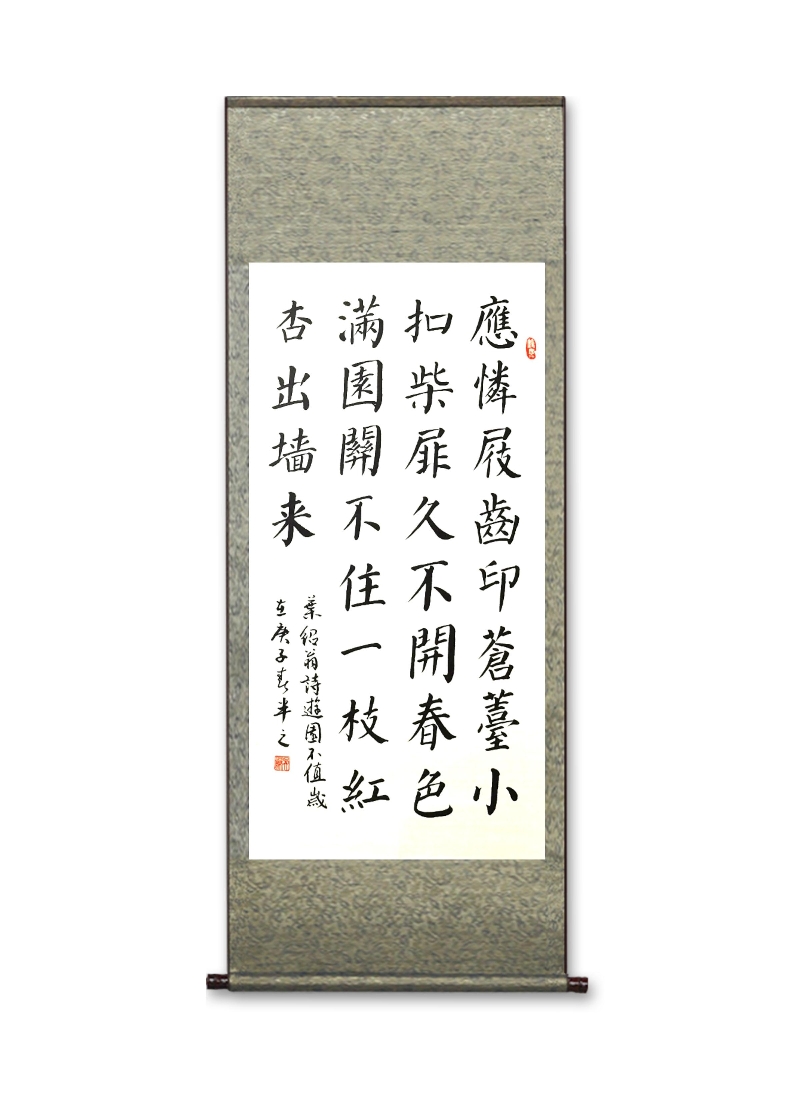 應憐屐齒印蒼薹小
扣柴扉久不開春色
滿園關不住一枝紅
杏出墙来
葉紹翁詩遊園不值歲
在庚子春半之